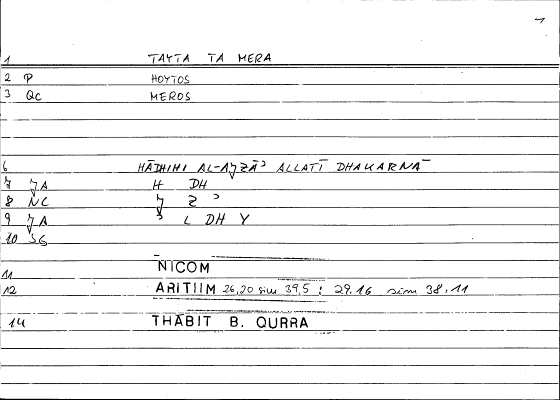 1 TAYTA TA MERA
2 P HOYTOS
3 Qc MEROS
6 HĀDHIHI AL-AJZĀʾ ALLATĪ DHAKARNĀ
7 JA H DH
8 NC J Z ʾ
9 JA ʾ L DH Y
10 SG
11 NICOM
12 ARITIIM 26,20 sim 39,5 ; 29.16 sim 38.11
14 THABIT B. QURRA